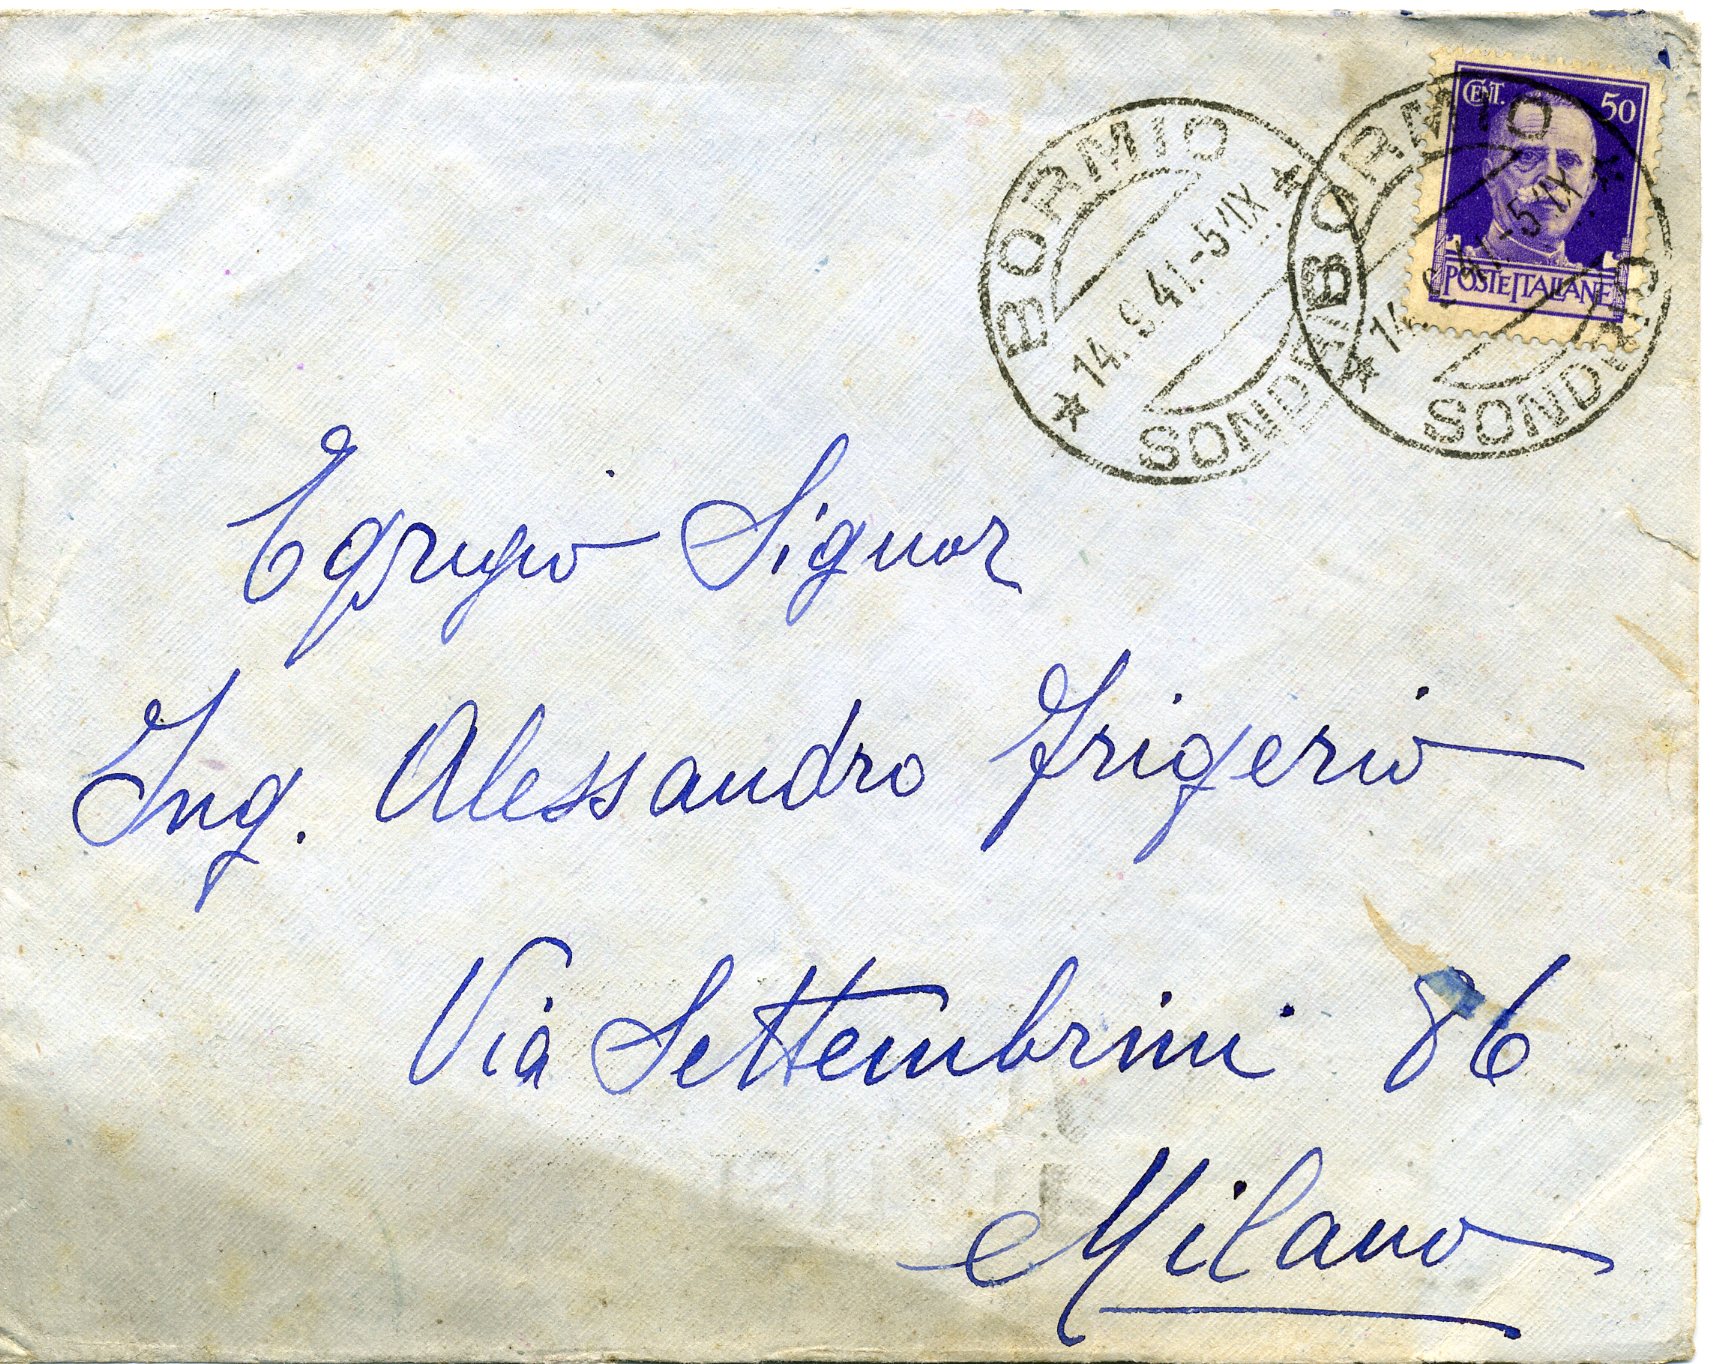 CENT. 50
POSTE ITALIANE
BORMIO
14.9.41.-5 XIX
SONDRIO
BORMIO
SONDRIO
Egregio Signor
Ing. Alessandro Frigerio
Via Settembrini 86
Milano